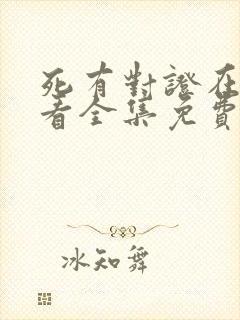 死有對證在
看全集免費
冰知舞